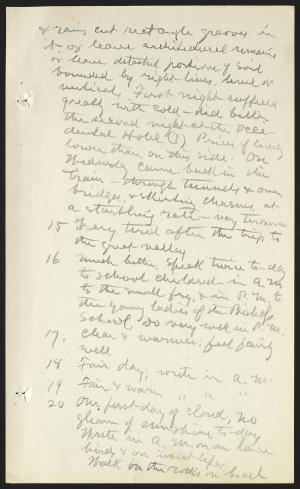 & rains cut rectangle grooves in
it or leave architectural remains
or leave detached portions of soil
bounded by right lines, hori. &
vertical. First night suffered
greatly with cold – did better
the second night at the Occi-
dental Hotel (?) Prices of living
lower than on this side. On
Wednesday came back in the
train – through tunnels & over
bridges, & skirting chasms at
a startling rate – very tiresome
15 Very tired after the trip to
the great valley
16 Much better, speak twice to-day
to school children – in A.M.
to the small fry, & in P.M. to
the young ladies of the Bishop
School, Do very well in P.M.
17. Clear & warmer; feel fairly
well
18 Fair day; write in A.M.
19 Fair & warm " " "
20 Our first day of cloud, no
gleam of sunshine to-day
Write in A.M. on
birds & on insect life
Walk on the rocks on beach